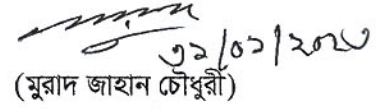 ৩১/০১/২০২৩
(মুরাদ জাহান চৌধুরী)